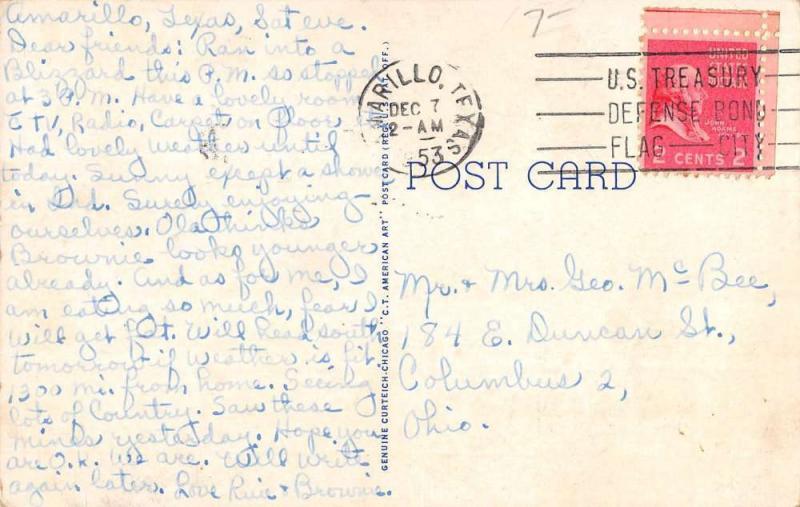 Amarillo, Texas, Sat eve.
Dear friends: Ran into a
Blizzard this P.M. so stopped
at 3 P.M. Have a lovely room
C TV, Radio, Carpet on floor
Had lovely weather until
today. Sunny except a shower
in Ind. Surely enjoying
ourselves. Ola thinks
Brownie looks younger
already. And as for me, I
am eating so much, fear I
will get fat. Will head south
tomorrow if weather is fit.
1300 mi. from home. Seeing
lots of Country. Saw these
mines yesterday. Hope you
are O.K. We are. Will write
again later. Love & Brownie.
GENUINE CURTEICH-CHICAGO "C.T. AMERICAN ART" POST CARD (REG. U.S. PAT. OFF.)
7-
AMARILLO, TEXAS
DEC 7
2-AM
1953
U.S. TREASURY
DEFENSE BOND
FLAG CITY
UNITED
JOHN
ADAMS
2 CENTS 2
POST CARD
Mr. & Mrs. Geo. McBee,
184 E. Duncan St.,
Columbus 2,
Ohio.